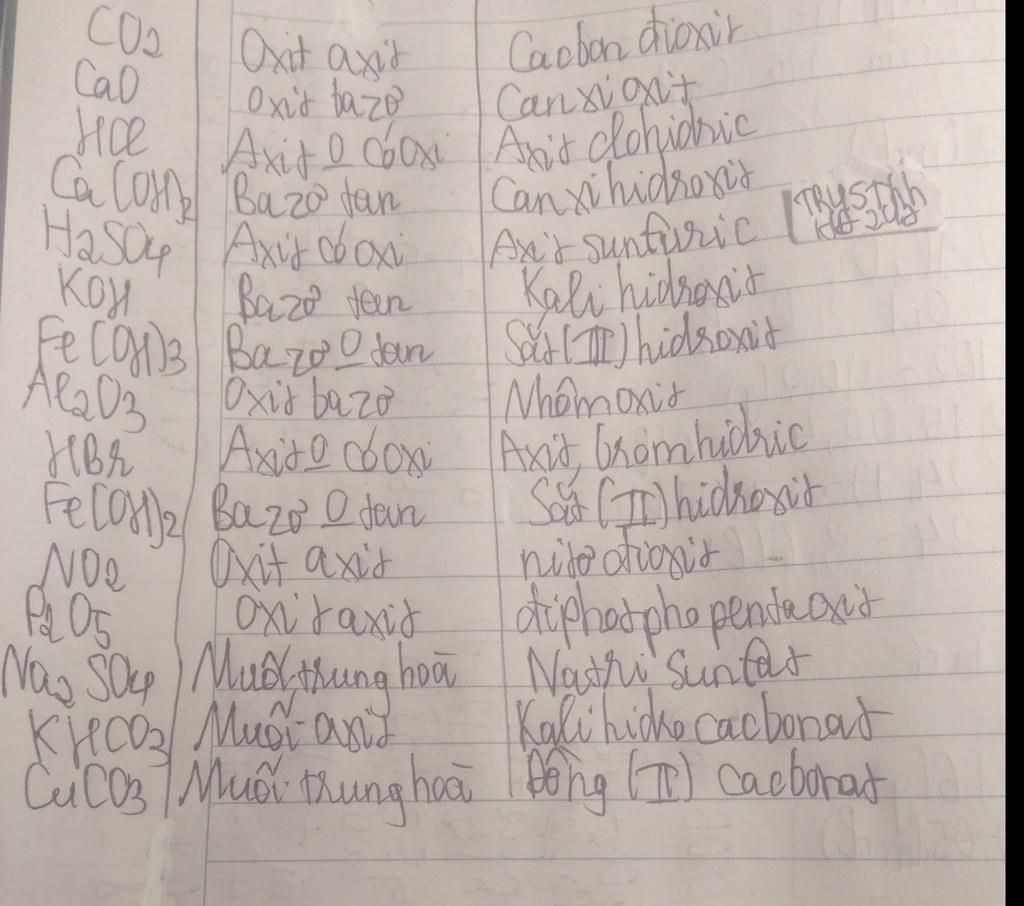 CO2 Oxit axit Cacbon đioxit
CaO Oxit bazơ Canxi oxit
HCl Axit 0 có oxi Axit clohidric
Ca(OH)2 Bazơ tan Canxi hidroxit
H2SO4 Axit có oxi Axit sunfuric
KOH Bazơ tan Kali hidroxit
Fe(OH)3 Bazơ 0 tan Sắt (III) hidroxit
Al2O3 Oxit bazơ Nhôm oxit
HBr Axit 0 có oxi Axit, bromhidric
Fe(OH)2 Bazơ 0 tan Sắt (II) hidroxit
NO2 Oxit axit nitơ đioxit
P2O5 Oxit axit điphotpho pentaoxit
Na2SO4 Muối trung hoà Natri sunfat
KHCO3 Muối axit Kali hidro cacbonat
CuCO3 Muối trung hoà Đồng (II) cacbonat